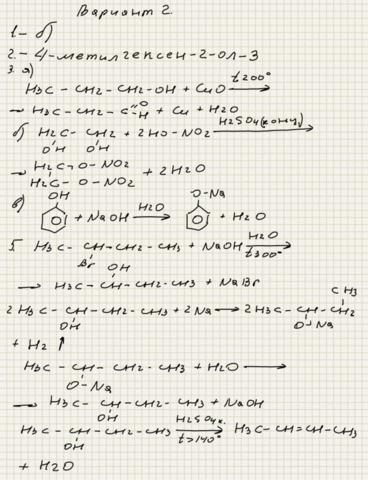 Вариант 2.
1 - б)
2. - 4-метилгексен-2-ол-3
3. а)
H3C - CH2 - CH2-OH + CuO t200° →
→ H3C - CH2 - C=O -H + Cu + H2O
б) H2C - CH2 + 2HO-NO2 H2SO4(конц.) →
OH OH
→ H2C - O - NO2
H2C - O - NO2 + 2H2O
в) OH + NaOH H2O → O-Na + H2O
5. H3C - CH-CH2-CH3 + NaOH H2O t300° →
Br
→ H3C - CH-CH2-CH3 + NaBr
OH
2H3C - CH - CH2 - CH3 + 2Na → 2H3C - CH - CH2
OH O-Na CH3
+ H2 ↑
H3C - CH - CH2 - CH3 + H2O →
O-Na
→ H3C - CH - CH2 - CH3 + NaOH
OH
H3C - CH - CH2 - CH3 H2SO4 к. t>140° → H3C - CH = CH - CH3
OH
+ H2O